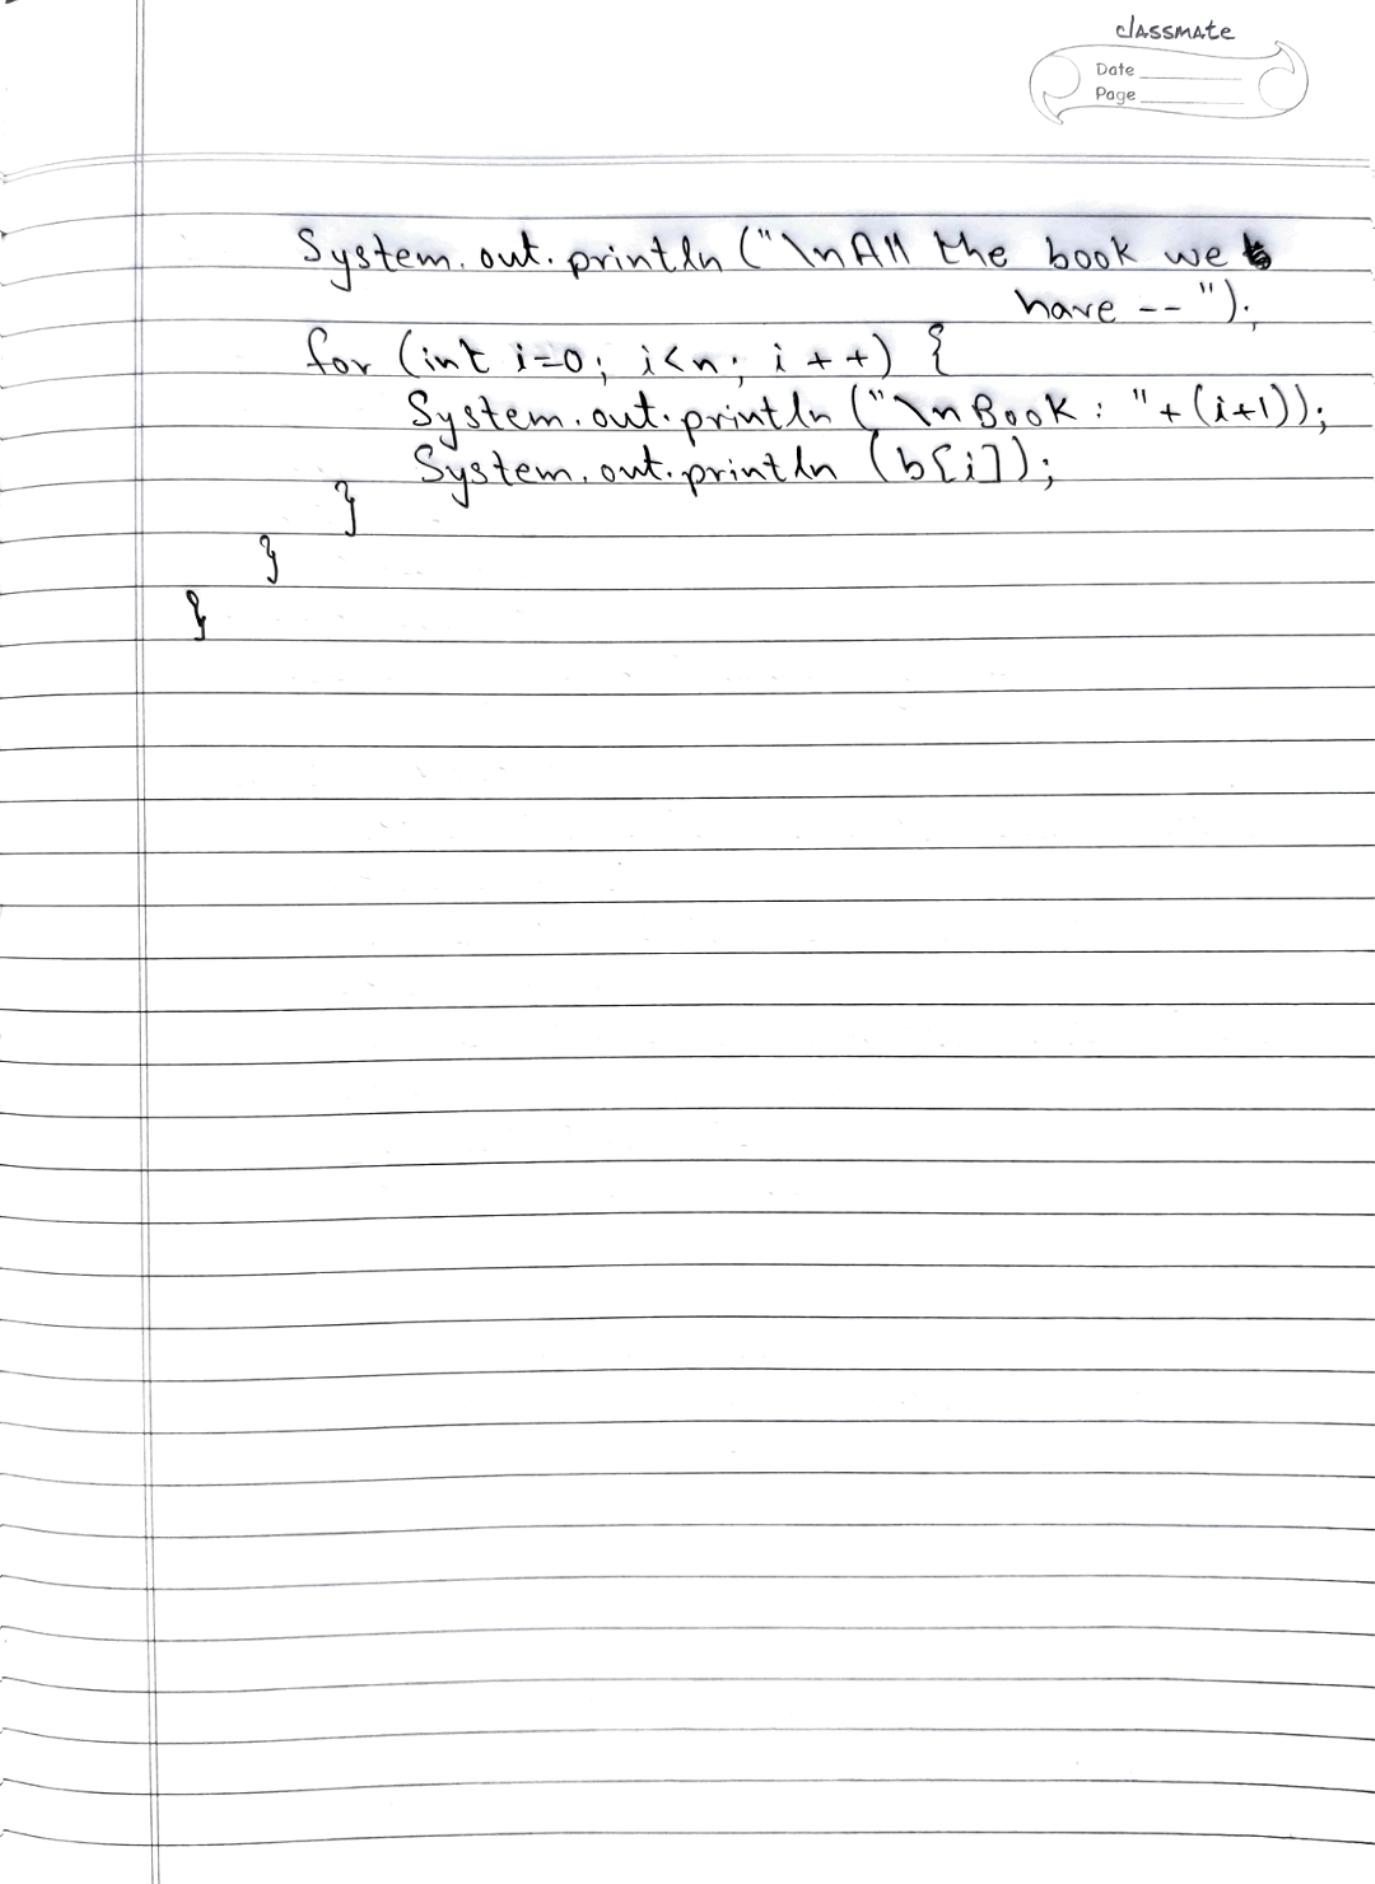 classmate
Date
Page
System.out.println("\nAll the book we
have --");
for (int i=0; i<n; i++) {
System.out.println("\nBook : "+(i+1));
System.out.println (b[i]);
}
}
}